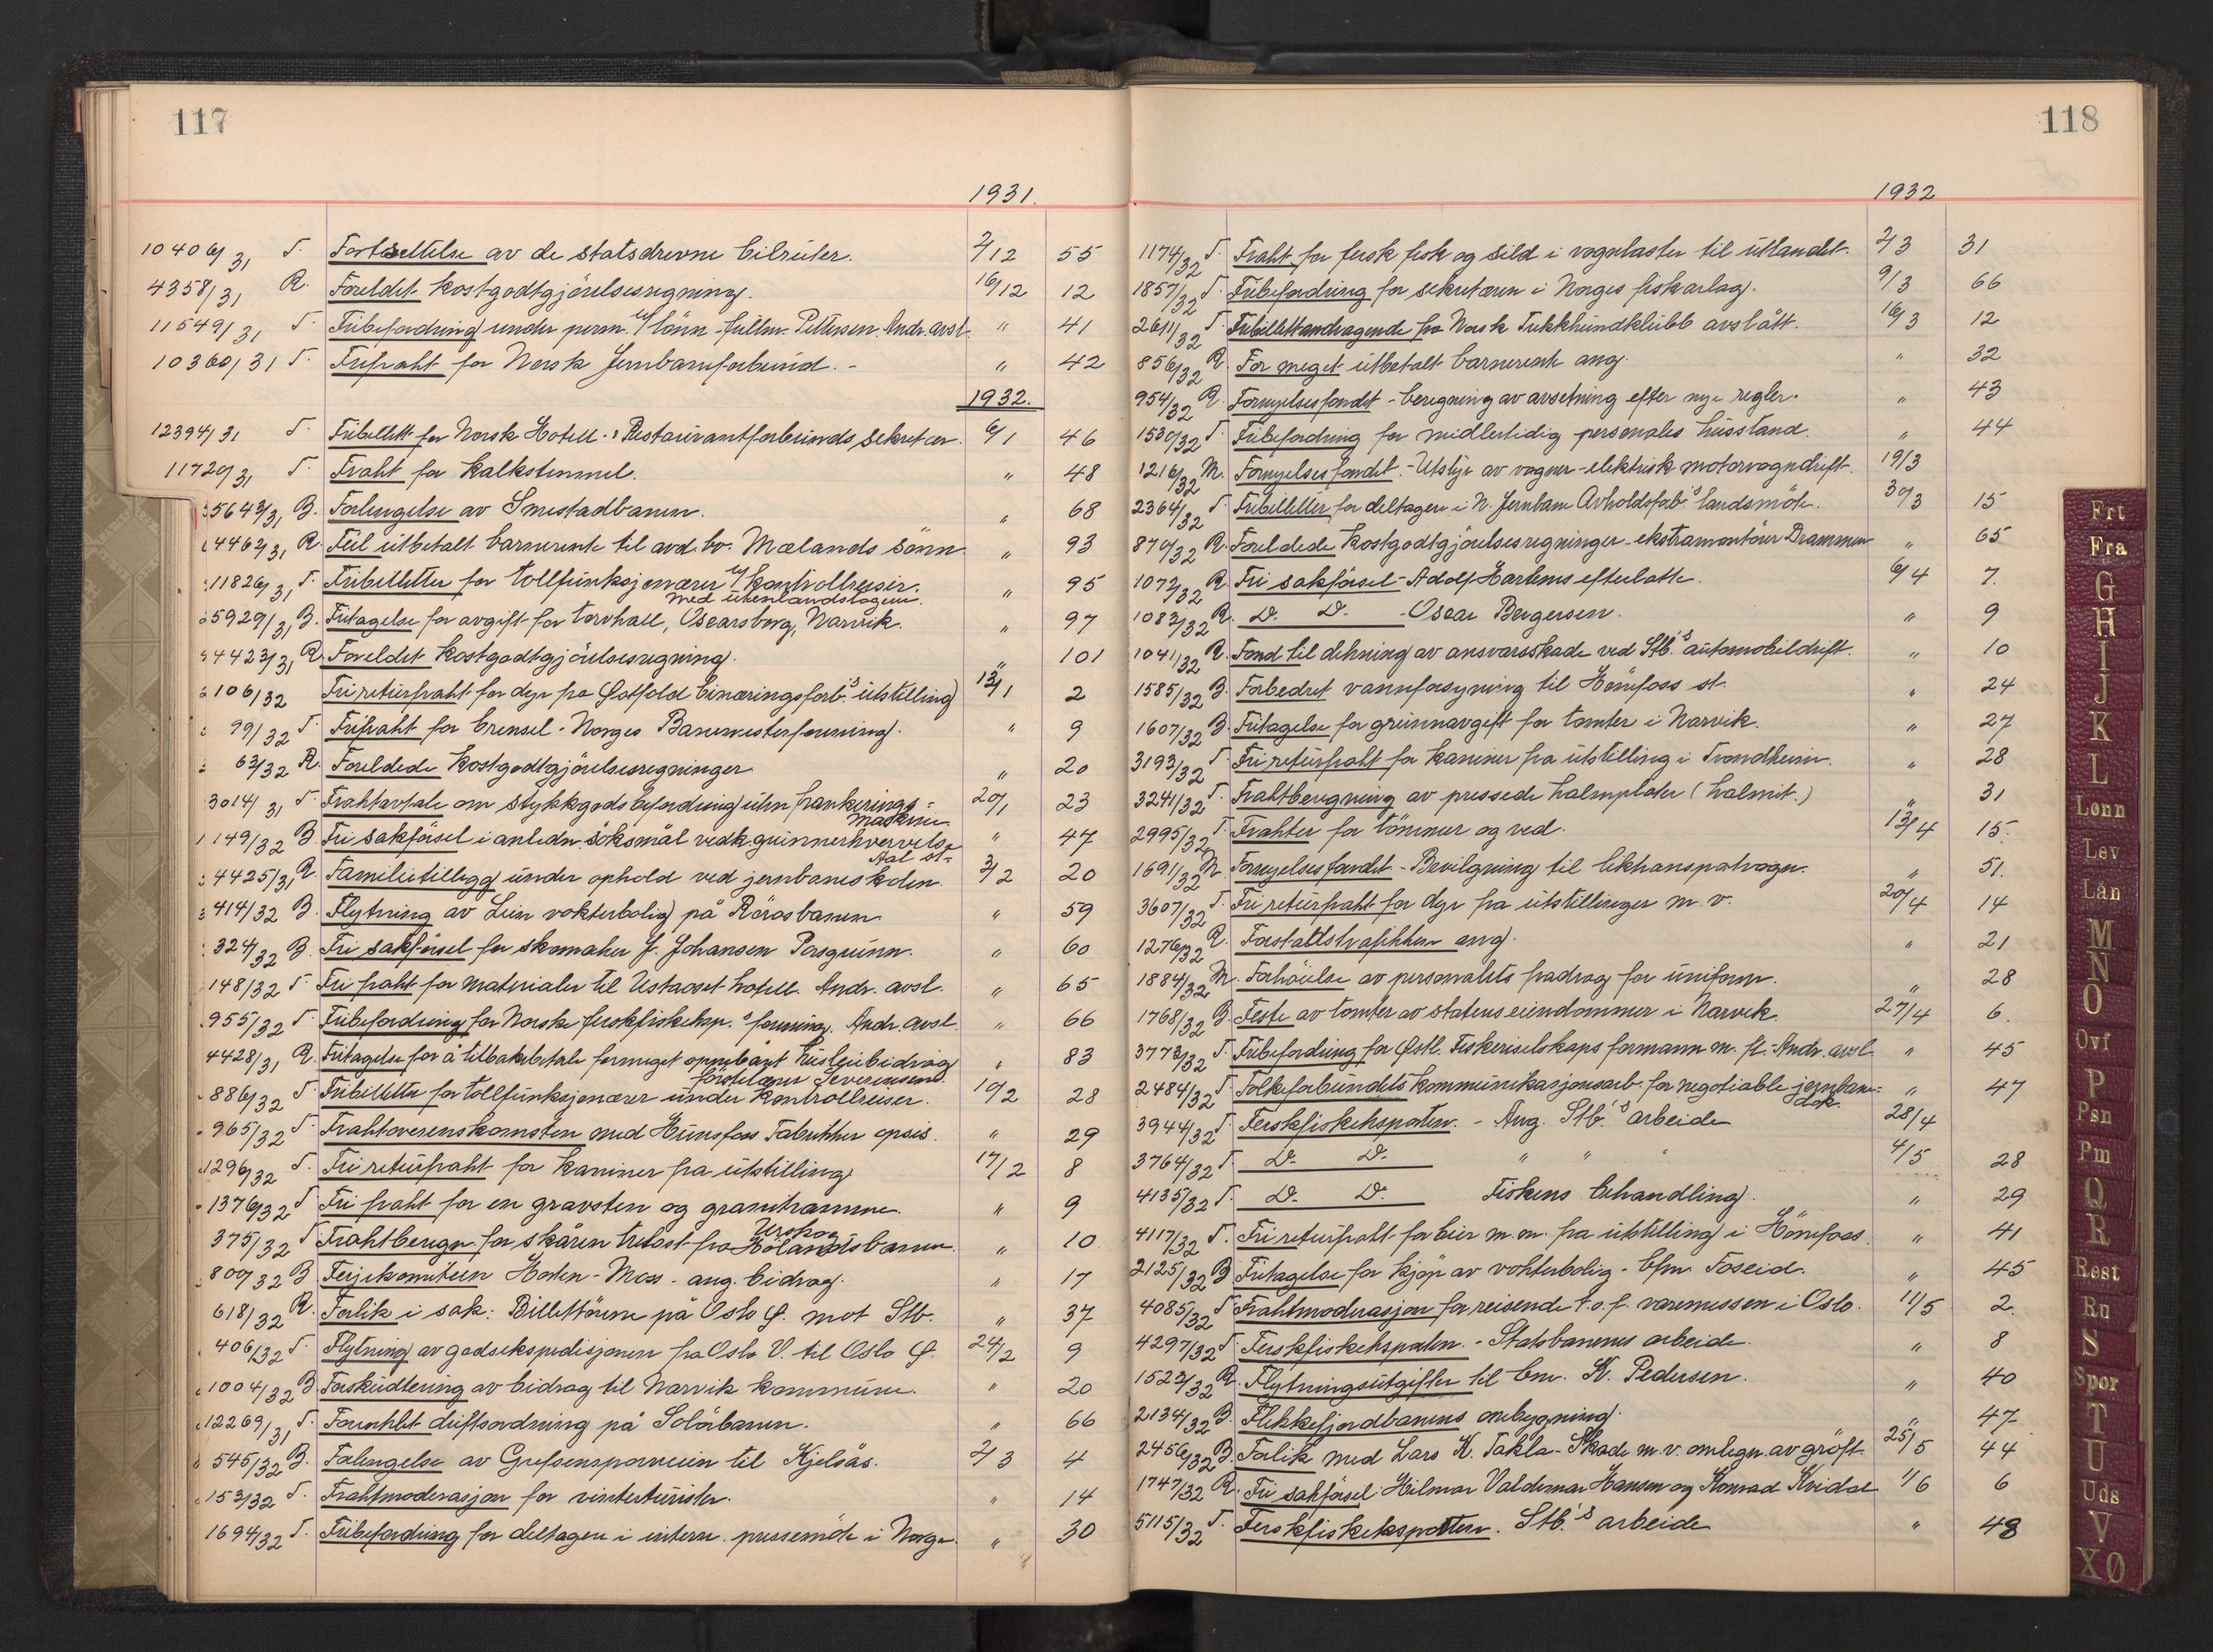 117
1931.
10406/31 T. Fortsettelse av de statsdrevne bilruter. 2/12 55
4358/31 R. Foreldet kostgodtgjörelsesregning. 16/12 12
11549/31 T. Fribefordring under perm. u/ lönn - fullm. Pettersen. Andr. avsl. " 41
10360/31 T. Frifraht for Norsk Jernbaneforbund. - " 42
1932.
12394/31 T. Fribillett for Norsk Hotell- & Restaurantforbunds sekretær. 6/1 46
11720/31 T. Fraht for kalkstensmel. " 48
5643/31 B. Forlengelse av Smestadbanen. " 68
4462/31 R. Feil utbetalt barnerente til avd. bv. Mælands sönn " 93
11826/31 T. Fribilletter for tollfunksjonærer u/ kontrollreiser. " 95
med utenlandstogene.
5929/31 B. Fritagelse for avgift for torvhall, Oscarsborg, Narvik. " 97
4423/31 R. Foreldet kostgodtgjörelsesregning. " 101
106/32 Fri returfraht for dyr fra Östfold binæringsforb.s utstilling 13/1 2
99/32 T Frifraht for brensel - Norges Banemesterforening. " 9
63/32 R. Foreldede kostgodtgjörelsesregninger " 20
3014/31 T Frahtavtale om stykkgodsbefordring uten frankerings- 20/1 23
maskin
149/32 B Fri sakförsel i anledn. söksmål vedk. grunnerhvervelse " 47
Aal st.
4425/31 R. Familietillegg under ophold ved jernbaneskolen. 3/2 20
414/32 B. Flytning av Lien vokterbolig på Rörosbanen " 59
324/32 B. Fri sakförsel for skomaker J. Johansen Porsgrunn. " 60
148/32 T Fri fraht for materialer til Ustaoset hotell. Andr. avsl. " 65
955/32 T Fribefordring for Norske ferskfiskeksp.s forening. Andr. avsl. " 66
4428/31 R. Fritagelse for å tilbakebetale formeget oppebåret husleiebidrag " 83
Severinsens.
886/32 T Fribilletter for tollfunksjonærer under kontrollreiser. 10/2 28
965/32 T Frahtoverenskomsten med Hunsfos Fabrikker opsis. " 29
1296/32 T. Fri returfraht for kaniner fra utstilling 17/2 8
1376/32 T Fri fraht for en gravsten og granitramme. " 9
Urskog
375/32 T Frahtberegn. for skåren trelast fra Hölandsbanen. " 10
800/32 B Ferjekomiteen Horten - Moss - ang. bidrag. " 17
618/32 R. Forlik i sak: Billettörene på Oslo Ö. mot Stb. " 37
406/32 T. Flytning av godsekspedisjonen fra Oslo V. til Oslo Ö. 24/2 9
1004/32 B Forskudtering av bidrag til Narvik kommune. " 20
12269/31 T. Forenklet driftsordning på Solörbanen. " 66
545/32 B. Forlengelse av Grefsensporveien til Kjelsås. 2/3 4
153/32 T. Frahtmoderasjon for vinterturister. " 14
1694/32 T. Fribefordring for deltagere i intern. pressemöte i Norge. " 30
118
1932
1174/32 T. Fraht for fersk fisk og sild i vognlaster til utlandet. 2/3 31
1857/32 T. Fribefordring for sekretæren i Norges fiskarlag. 9/3 66
2611/32 T. Fribillettandragende fra Norsk Trekkhundklubb avslått. 16/3 12
856/32 R. For meget utbetalt barnerente ang. " 32
954/32 R. Fornyelsesfondet - beregning av avsetning efter nye regler. " 43
1530/32 T. Fribefordring for midlertidig personales husstand. " 44
1216/32 M. Fornyelsesfondet. - Utstyr av vogner - elektrisk motorvogndrift. 19/3
2364/32 T. Fribilletter for deltagere i N. Jernbane Avholdsforb.s landsmöte. 30/3 15
870/32 R. Foreldede kostgodtgjörelsesregninger - ekstramontörer Drammen " 65
1072/32 R. Fri sakförsel - Adolf Hartens efterlatte. 6/4 7.
1082/32 R. D. D. - Oscar Bergersen. " 9
1041/32 R. Fond til dekning av ansvarsskade ved Stb.s automobildrift. " 10
1585/32 B. Forbedret vannforsyning til Hönefoss st. " 24
1607/32 B. Fritagelse for grunnavgift for tomter i Narvik. " 27
3193/32 T. Fri returfraht for kaniner fra utstilling i Trondheim. " 28
3241/32 T. Frahtberegning av pressede halmplater (halmit.) " 31
2995/32 T. Frahter for tömmer og ved. 13/4 15.
1691/32 M Fornyelsesfondet - Bevilgning til liktransportvogn. " 51.
3607/32 T. Fri returfraht for dyr fra utstillinger m. v. 20/4 14
1276/32 R. Forstadtstrafikken ang. " 21
1884/32 M. Forhöielse av personalets fradrag for uniform. " 28
1768/32 B. Feste av tomter av statens eiendommer i Narvik. 27/4 6.
3773/32 T. Fribefordring for Östl. Fiskeriselskaps formann m. fl. - Andr. avsl. " 45
2484/32 T. Folkeforbundets kommunikasjonsarb. for negotiable jernbane- " 47
dok.
3944/32 T. Ferskfiskeksporten. - Ang. Stb.'s arbeide 28/4
3764/32 T. D. D. " " " 4/5 28
4135/32 T. D. D. Fiskens behandling. " 29
4117/32 T. Fri returfraht for bier m. m. fra utstilling i Hönefoss. " 41
2125/32 B Fritagelse for kjöp av vokterbolig - bfm. Foseid. " 45
4085/32 T Frahtmoderasjon for reisende t. o. f. varemessen i Oslo. 11/5 2.
4297/32 T. Ferskfiskeksporten. - Statsbanenes arbeide. " 8
1522/32 R. Flytningsutgifter til bm. K. Pedersen. " 40
2134/32 B. Flekkefjordbanens ombygning. " 47
2456/32 B. Forlik med Lars K. Takla - Skade m. v. omlegn. av gröft. 25/5 44
1747/32 R. Fri sakförsel: Hilmar Valdemar Hansen og Konrad Kvidal 1/6 6
5115/32 T. Ferskfiskeksporten. Stb.'s arbeide " 48
Frt
Fra
G
H
I
J
K
L
Lønn
Lev
Lån
M
N
O
Ovf
P
Psn
Pm
Q
R
Rest
Ru
S
Spor
T
U
Uds
V
XØ